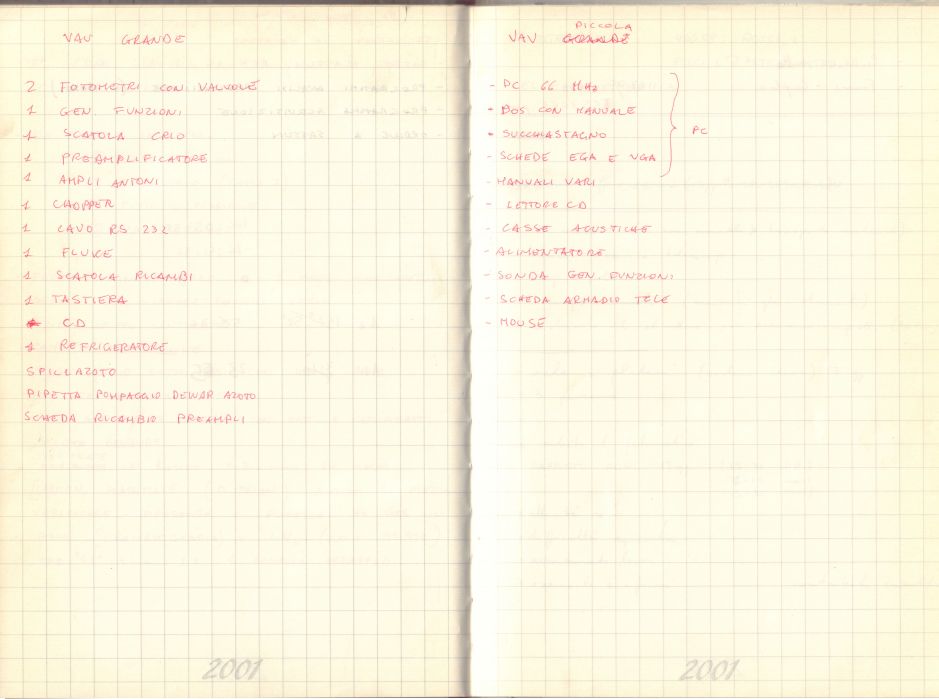 VAV GRANDE
2 FOTOMETRI CON VALVOLE
1 GEN. FUNZIONI
1 SCATOLA CRIO
1 PREAMPLIFICATORE
1 AMPLI ANTONI
1 CHOPPER
1 CAVO RS 232
1 FLUKE
1 SCATOLA RICAMBI
1 TASTIERA
CD
1 REFRIGERATORE
SPILLAZOTO
PIPETTA POMPAGGIO DEWAR AZOTO
SCHEDA RICAMBIO PREAMPLI
2001
PICCOLA
VAV GRANDE
- PC 66 MHz
- BOS CON MANUALE
- SUCCHIASTAGNO
- SCHEDE EGA E VGA
PC
- MANUALI VARI
- LETTORE CD
- CASSE ACUSTICHE
- ALIMENTATORE
- SONDA GEN. FUNZIONI
- SCHEDA ARMADIO TELE
- MOUSE
2001